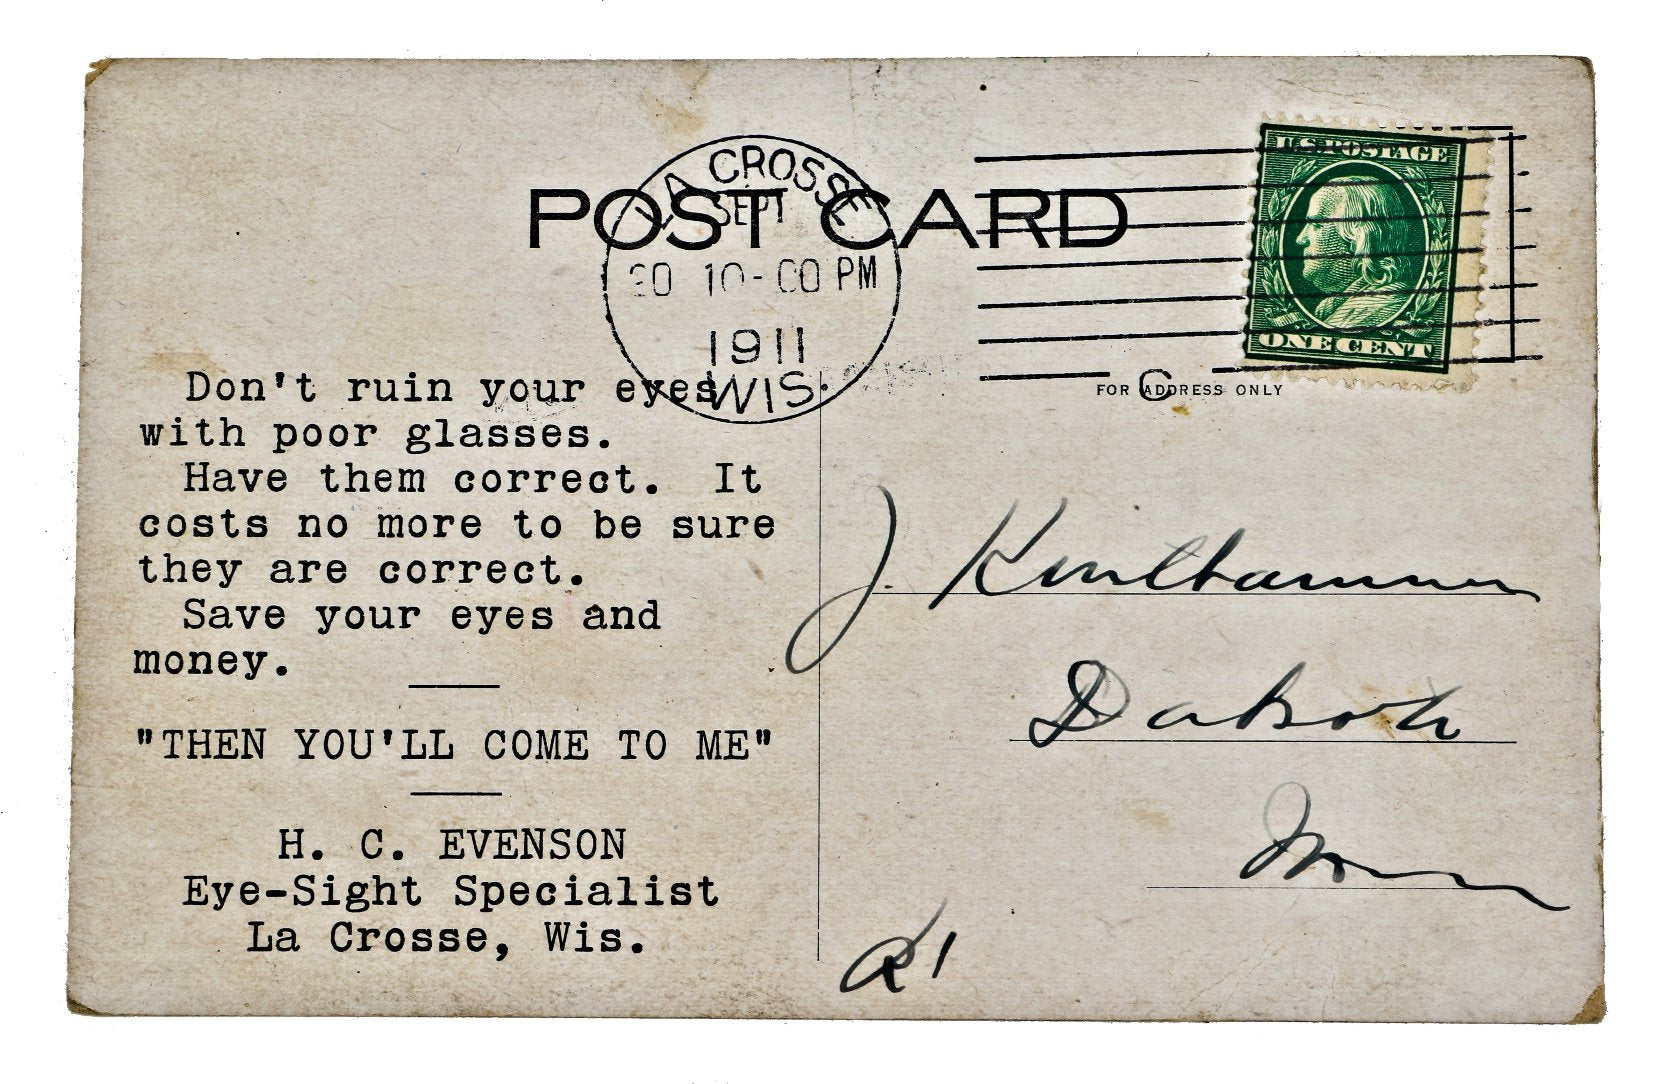 POST CARD
LA CROSSE
SEPT
30 10-00 PM
1911
WIS.
U.S. POSTAGE
ONE CENT
C
FOR ADDRESS ONLY
Don't ruin your eyes
with poor glasses.
Have them correct. It
costs no more to be sure
they are correct.
Save your eyes and
money.
"THEN YOU'LL COME TO ME"
H. C. EVENSON
Eye-Sight Specialist
La Crosse, Wis.
J.
Dakota
Minn
R1